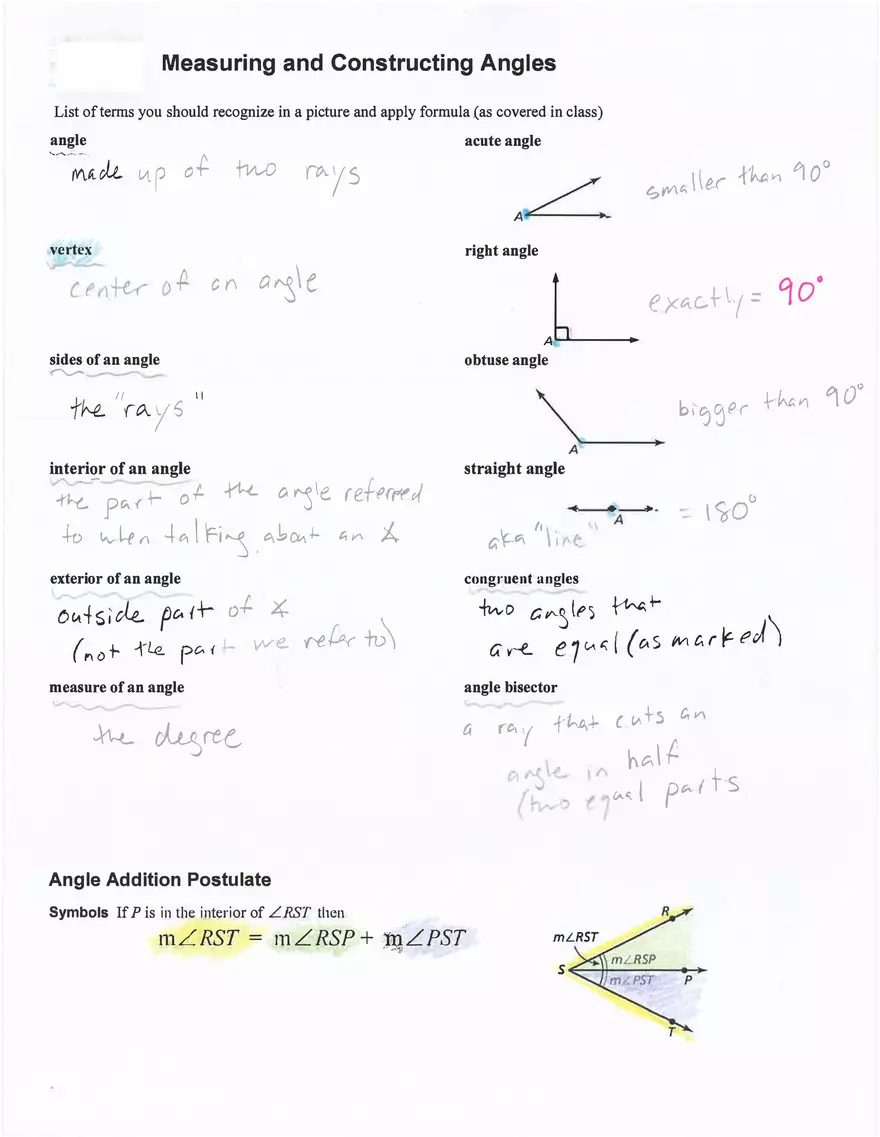 Measuring and Constructing Angles
List of terms you should recognize in a picture and apply formula (as covered in class)
angle
made up of two rays
vertex
center of an angle
sides of an angle
the "rays"
interior of an angle
the part of the angle referred
to when talking about an ∡
exterior of an angle
outside part of ∡
(not the part we refer to)
measure of an angle
the degree
acute angle
A
smaller than 90°
right angle
A
exactly = 90°
obtuse angle
A
bigger than 90°
straight angle
A
= 180°
aka "line"
congruent angles
two angles that
are equal (as marked)
angle bisector
a ray that cuts an
angle in half
(two equal parts
Angle Addition Postulate
Symbols If P is in the interior of ∠RST then
m∠RST = m∠RSP + m∠PST
R
m∠RST
m∠RSP
S
P
m∠PST
T